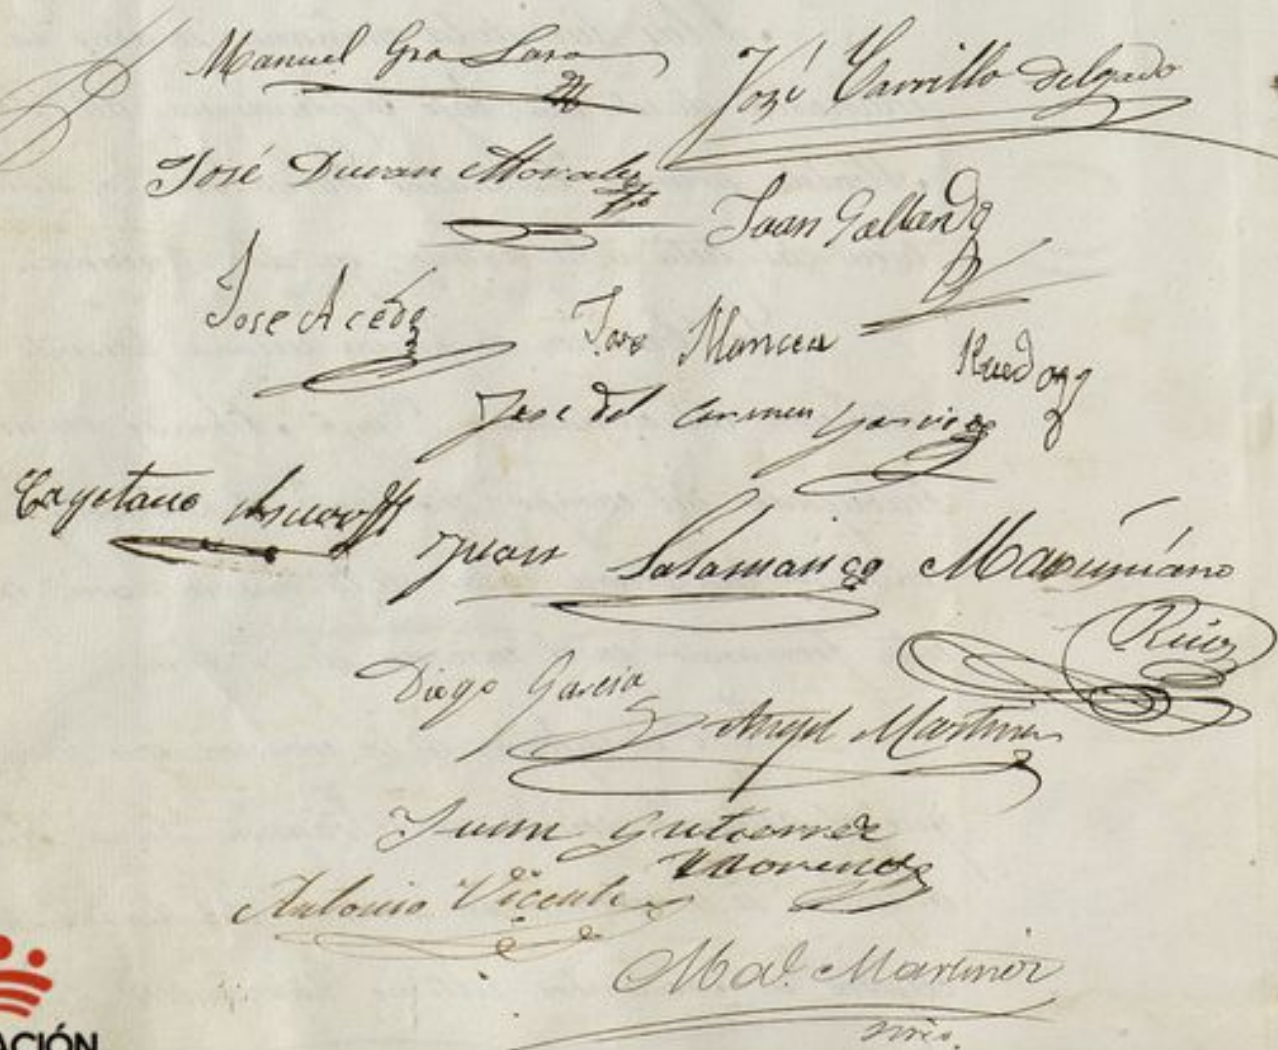 Manuel Gra Lara
José Carrillo Delgado
José Duran Morales
Juan Gallardo
Jose Acedo
Jose Mancera
Rueda
Jose del Carmen Garcia
Cayetano
Juan Salamanca
Maximiano
Ruiz
Diego Garcia
Angel Martinez
Juan Gutierrez
Moreno
Antonio Vicente
Ml. Martinez
Srio.
ACIÓN